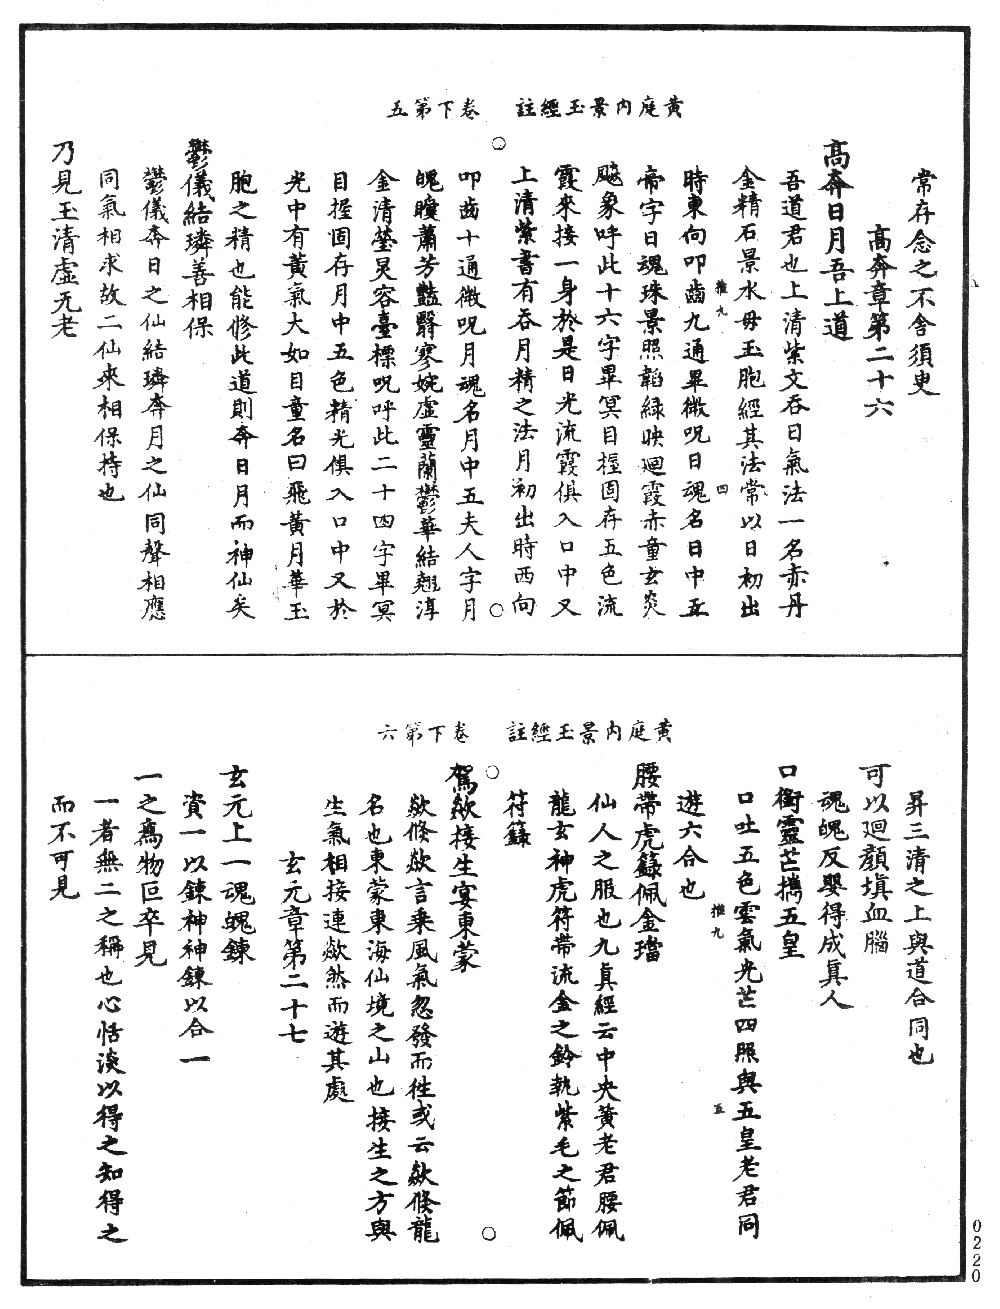 黃庭內景玉經註　卷下第五
常存念之不舍須臾
高奔章第二十六
高奔日月吾上道
吾道君也上清紫文吞日氣法一名赤丹
金精石景水母玉胞經其法常以日初出
時東向叩齒九通畢微呪日魂名日中五
帝字日魂珠景照韜綠映廻霞赤童玄炎
飈象呼此十六字畢冥目握固存五色流
霞來接一身於是日光流霞俱入口中又
上清紫書有吞月精之法月初出時西向
叩齒十通微呪月魂名月中五夫人字月
魄曖蕭芳豔翳寥婉虛靈蘭鬱華結翹淳
金清瑩炅容臺標呪呼此二十四字畢冥
目握固存月中五色精光俱入口中又於
光中有黃氣大如目童名曰飛黃月華玉
胞之精也能修此道則奔日月而神仙矣
鬱儀結璘善相保
鬱儀奔日之仙結璘奔月之仙同聲相應
同氣相求故二仙來相保持也
乃見玉清虛无老
推九
四
黃庭內景玉經註　卷下第六
昇三清之上與道合同也
可以廻顏填血腦
魂魄反嬰得成真人
口銜靈芒擕五皇
口吐五色雲氣光芒四照與五皇老君同
遊六合也
腰帶虎籙佩金璫
仙人之服也九真經云中央黃老君腰佩
龍玄神虎符帶流金之鈴執紫毛之節佩
符籙
駕欻接生宴東蒙
欻倏欻言乘風氣忽發而往或云欻倏龍
名也東蒙東海仙境之山也接生之方與
生氣相接連欻然而遊其處
玄元章第二十七
玄元上一魂魄鍊
資一以鍊神神鍊以合一
一之為物叵卒見
一者無二之稱也心恬淡以得之知得之
而不可見
推九
五
0220